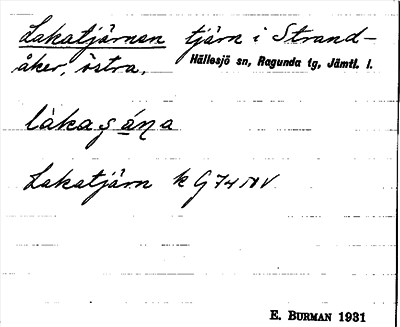 Lakatjärnen tjärn i Strand-
åker, östra. Hällesjö sn, Ragunda tg, Jämtl. l.
làkaʂá̱ɳa
Lakatjärn k G 74 NV
E. BURMAN 1931